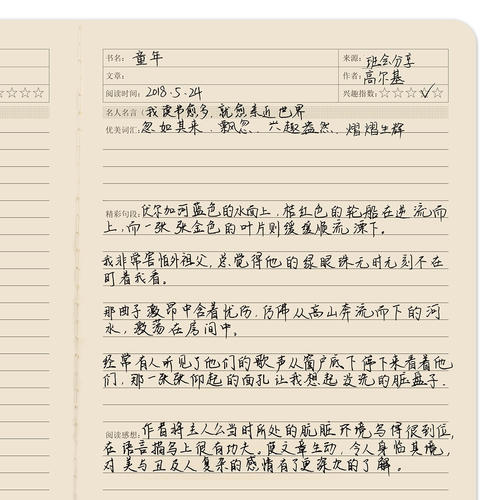 书名：童年
来源：班会分享
文章：
作者：高尔基
阅读时间：2018.5.24
兴趣指数：☆☆☆☆☆
☆☆☆☆
名人名言（我读书愈多，就愈亲近世界
优美词汇：忽如其来、飘忽、兴趣盎然、熠熠生辉
精彩句段：伏尔加河蓝色的水面上，桔红色的轮船在逆流而
上，而一张张金色的叶片则缓缓顺流漂下。
我非常害怕外祖父，总觉得他的绿眼珠无时无刻不在
盯着我看。
那曲子激昂中含着忧伤，仿佛从高山奔流而下的河
水，激荡在房间中。
经常有人听见了他们的歌声从窗户底下停下来看着他
们，那一张张仰起的面孔让我想起没洗的脏盘子.
阅读感想：作者将主人公当时所处的肮脏环境写得很到位，
在语言描写上很有功夫。更文章生动，令人身临其境，
对美与丑及人复杂的感情有了更深次的了解。